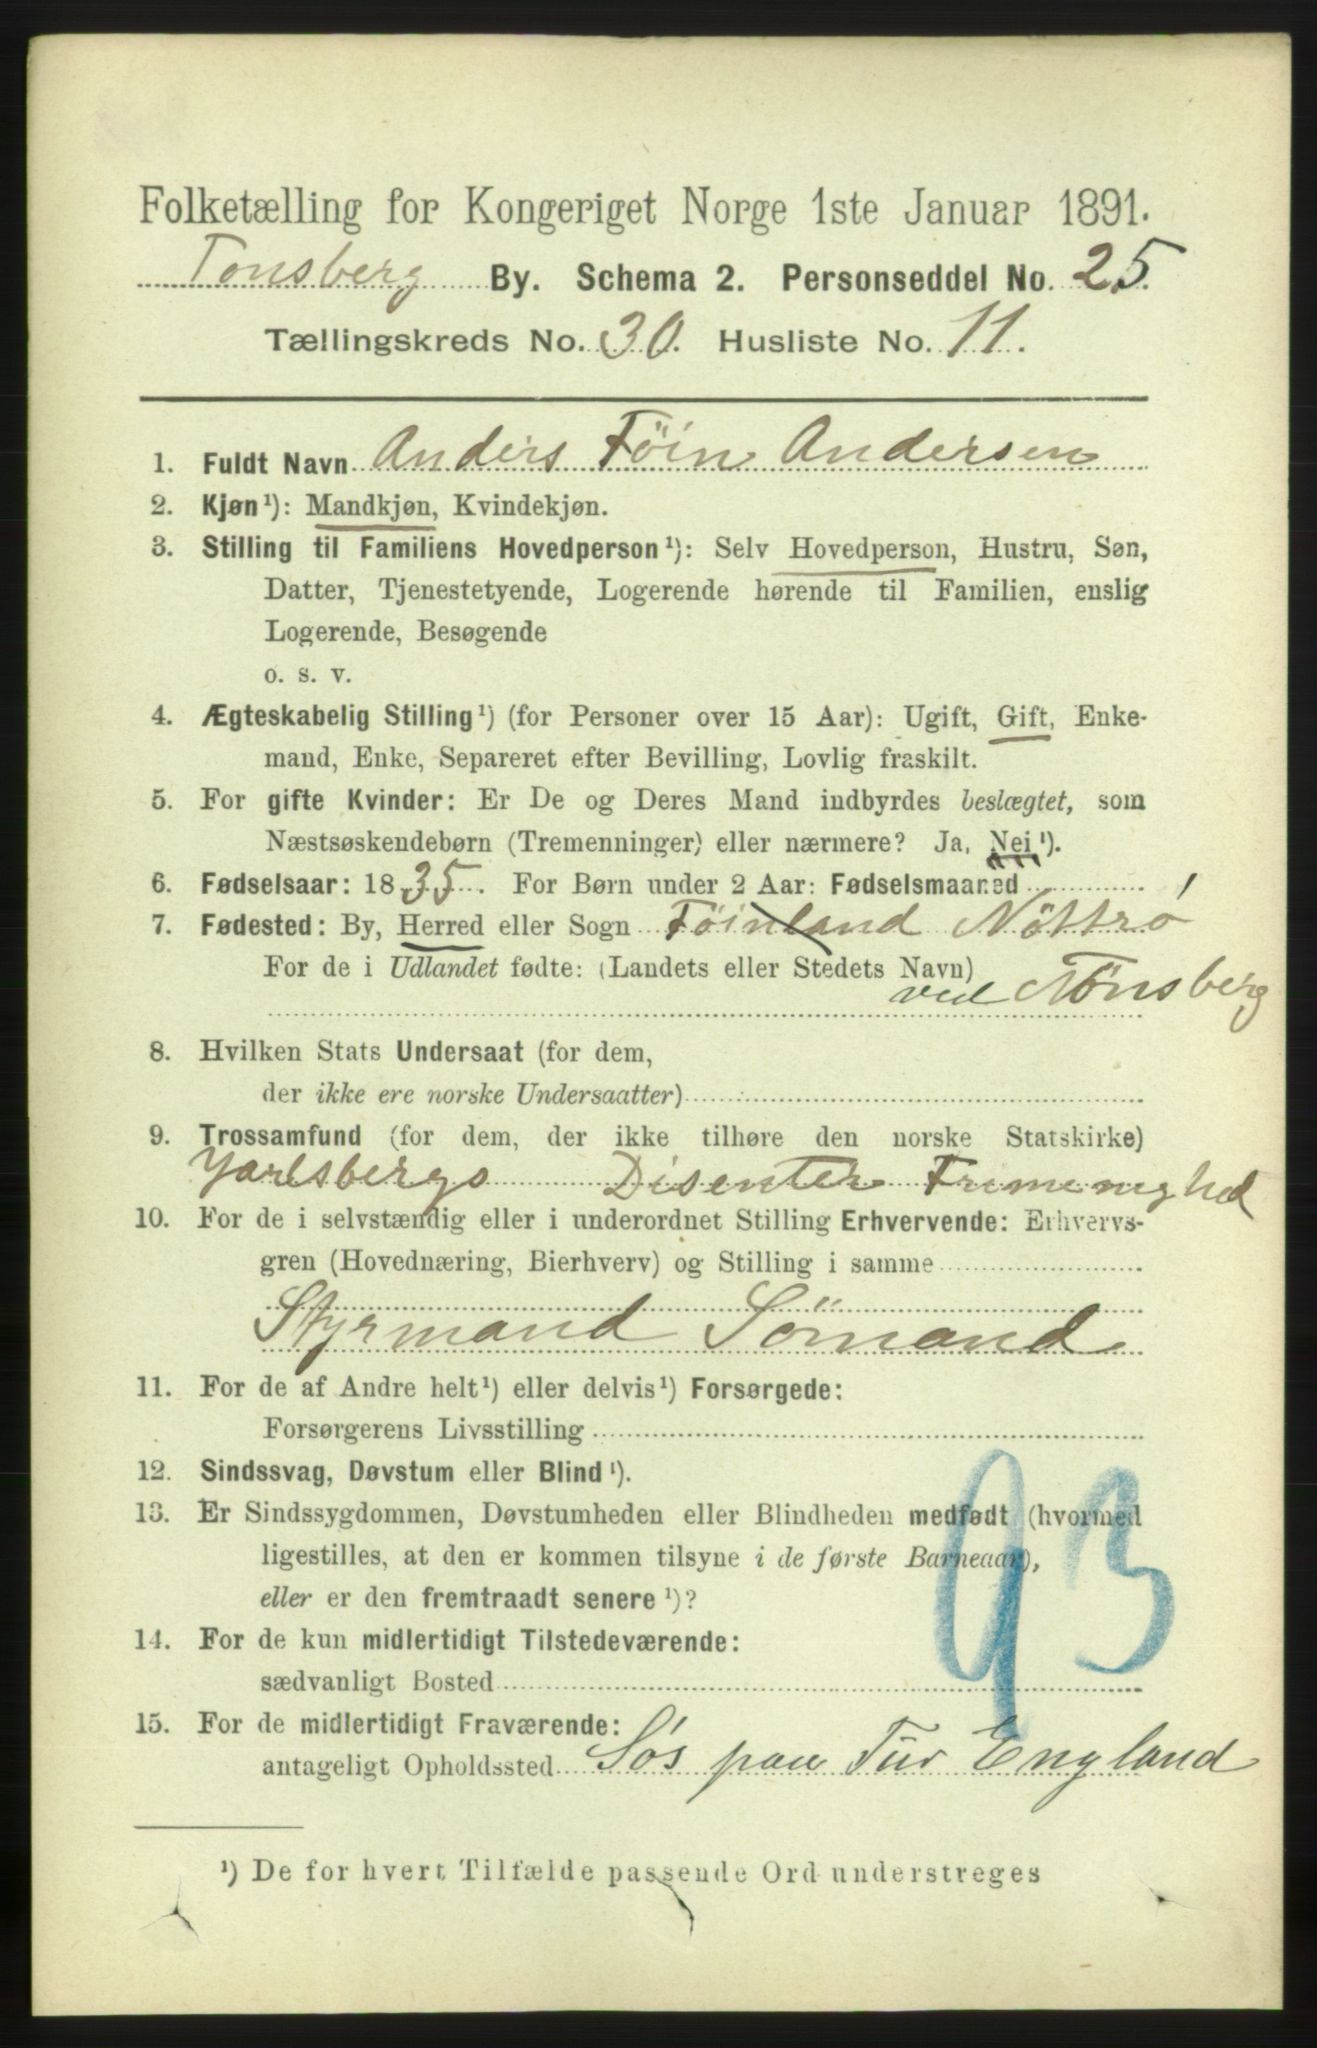 Folketælling for Kongeriget Norge 1ste Januar 1891.
Tønsberg By. Schema 2. Personseddel No. 25.
Tællingskreds No. 30. Husliste No. 11.
1. Fuldt Navn Anders Föin Andersen
2. Kjøn¹): Mandkjøn, Kvindekjøn.
3. Stilling til Familiens Hovedperson¹): Selv Hovedperson, Hustru, Søn,
Datter, Tjenestetyende, Logerende hørende til Familien, enslig
Logerende, Besøgende
o. s. v.
4. Ægteskabelig Stilling¹) (for Personer over 15 Aar): Ugift, Gift, Enke-
mand, Enke, Separeret efter Bevilling, Lovlig fraskilt.
5. For gifte Kvinder: Er De og Deres Mand indbyrdes beslægtet, som
Næstsøskendebørn (Tremenninger) eller nærmere? Ja, Nei¹).
6. Fødselsaar: 1835. For Børn under 2 Aar: Fødselsmaaned
7. Fødested: By, Herred eller Sogn Föinland Nöttrö
For de i Udlandet fødte: (Landets eller Stedets Navn)
ved Tönsberg
8. Hvilken Stats Undersaat (for dem,
der ikke ere norske Undersaatter)
9. Trossamfund (for dem, der ikke tilhøre den norske Statskirke)
Jarlsbergs Disenter Frimenighed
10. For de i selvstændig eller i underordnet Stilling Erhvervende: Erhvervs-
gren (Hovednæring, Bierhverv) og Stilling i samme
Styrmand Sömand
11. For de af Andre helt¹) eller delvis¹) Forsørgede:
Forsørgerens Livsstilling
12. Sindssvag, Døvstum eller Blind¹).
13. Er Sindssygdommen, Døvstumheden eller Blindheden medfødt (hvormed
ligestilles, at den er kommen tilsyne i de første Barneaar),
eller er den fremtraadt senere¹)?
93
14. For de kun midlertidigt Tilstedeværende:
sædvanligt Bosted
15. For de midlertidigt Fraværende:
antageligt Opholdssted Sös paa Tur England
¹) De for hvert Tilfælde passende Ord understreges